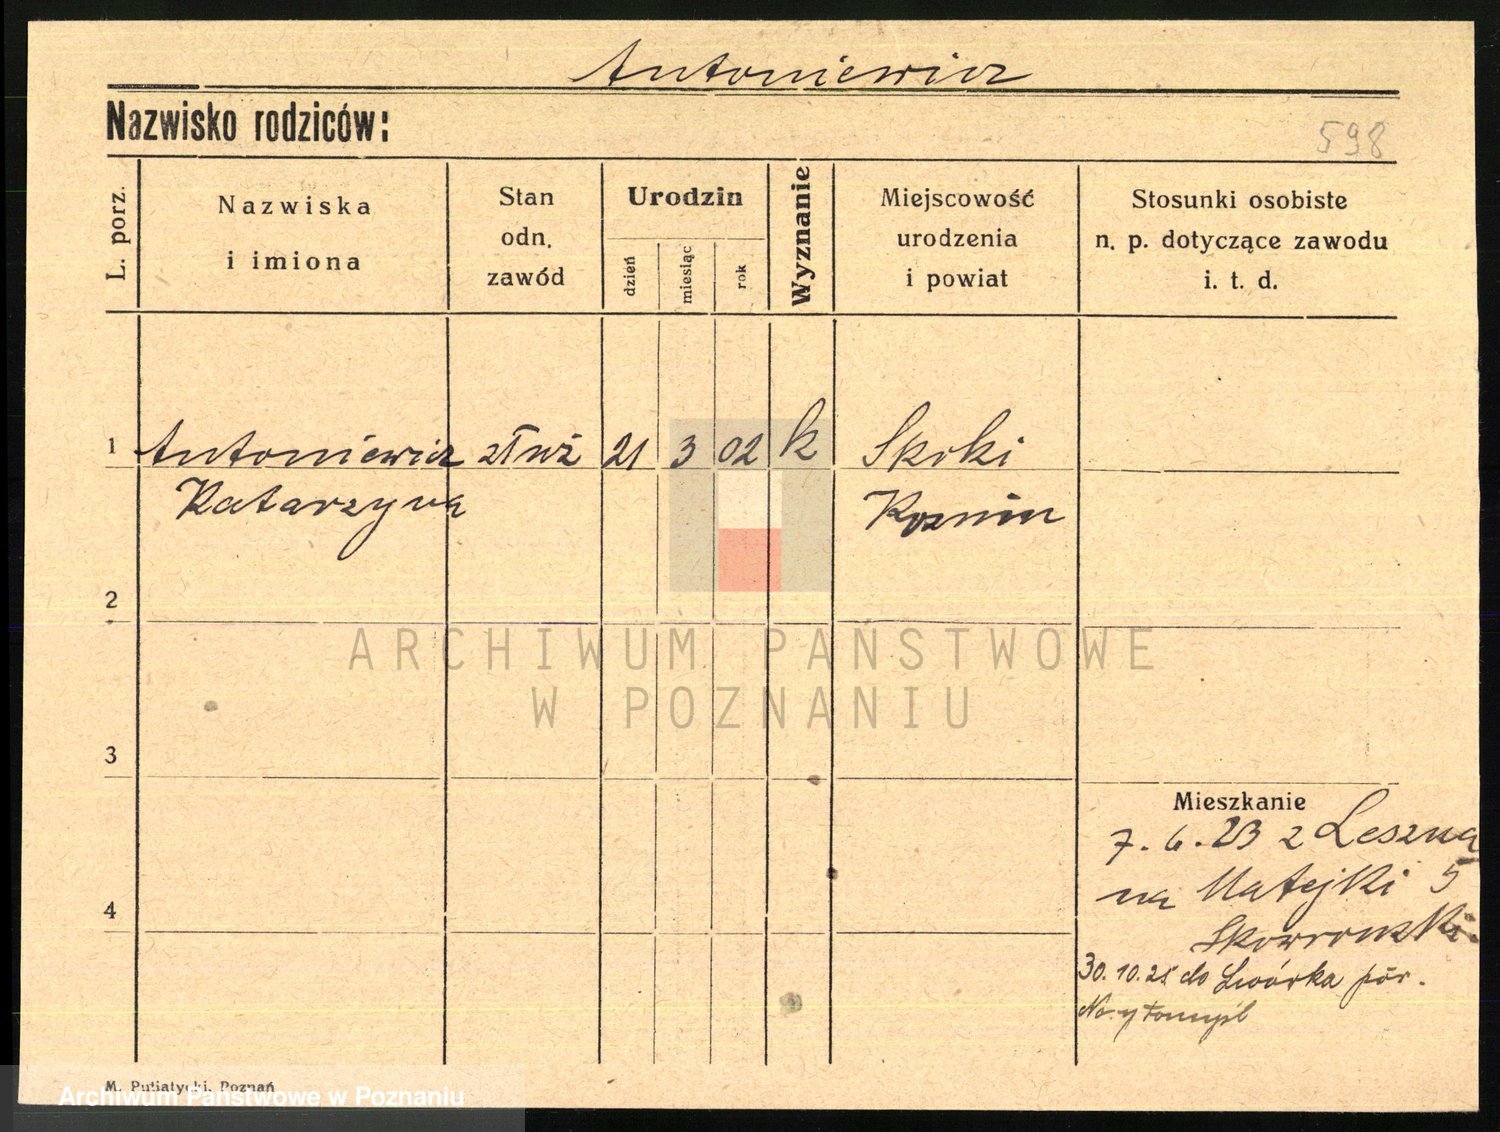 Antoniewicz
Nazwisko rodziców:
598
L. porz.
Nazwiska
i imiona
Stan
odn.
zawód
Urodzin
dzień
miesiąc
rok
Wyznanie
Miejscowość
urodzenia
i powiat
Stosunki osobiste
n. p. dotyczące zawodu
i. t. d.
1 Antoniewicz służ 21 3 02 k Skoki
Katarzyna
2
3
4
ARCHIWUM PAŃSTWOWE
W POZNANIU
Mieszkanie
7. 6. 23 z Leszna
na Matejki 5
30. 10. 25 do Lwówka
M. Putiatycki, Poznań
Archiwum Państwowe w Poznaniu